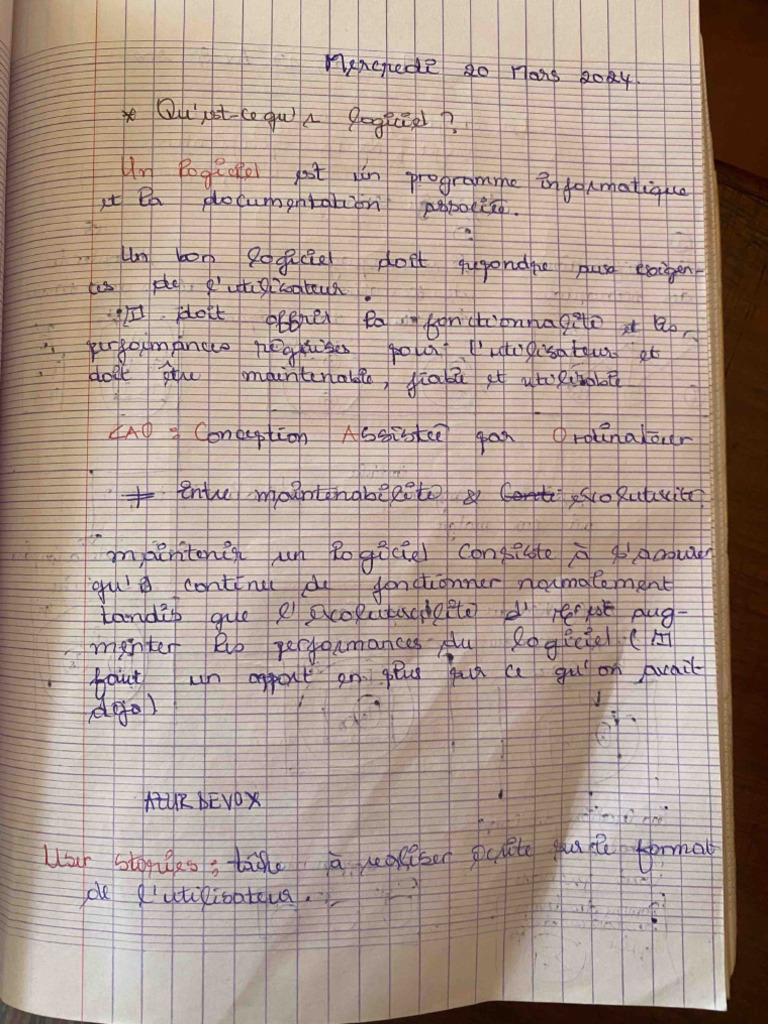 Mercredi 20 Mars 2024.
* Qu'est-ce qu'1 logiciel ?
Un logiciel est un programme informatique
et la documentation associée.
Un bon logiciel doit repondre aux exigen-
ces de l'utilisateur.
Il doit offrir la fonctionnalité et les
performances requises pour l'utilisateur et
doit être maintenable, fiable et utilisable
CAO : Conception Assistée par Ordinateur
Entre maintenabilité & evolutivité
maintenir un logiciel consiste à s'assurer
qu'il continu de fonctionner normalement
tandis que l'evolutivité aug-
menter les performances du logiciel ( Il
faut un apport en plus sur ce qu'on avait
deja)
AZUR DEVOX
User stories : tâche à realiser écrite sur le format
de l'utilisateur.